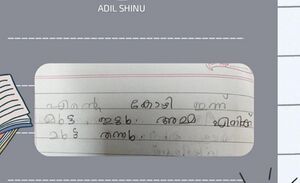 ADIL SHINU
എന്റെ കോഴി ഇന്ന്
മുട്ട ഇട്ടു. അമ്മ എനിക്ക്
മുട്ട തന്നു.